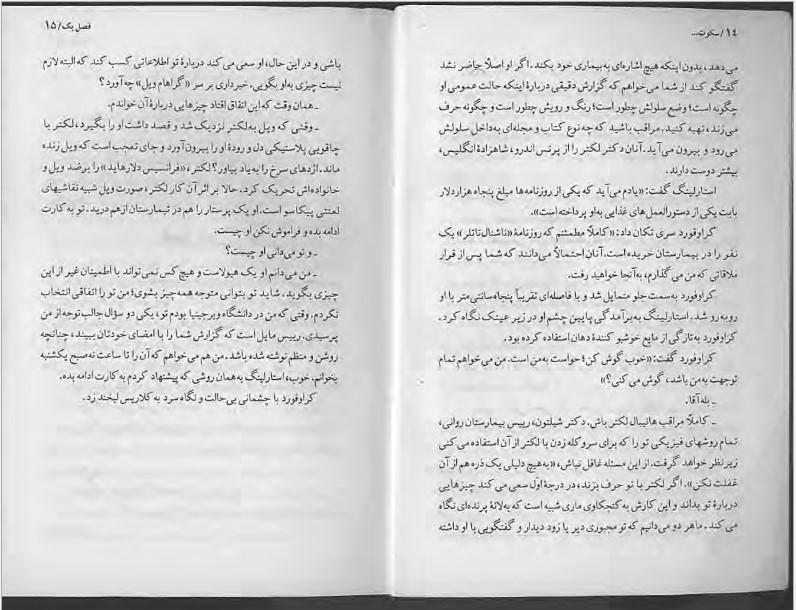 ۱٤ / سکوت...
می‌دهد، بدون اینکه هیچ اشاره‌ای به‌بیماری خود بکند. اگر او اصلاً حاضر نشد
گفتگو کند از شما می‌خواهم که گزارش دقیقی دربارهٔ اینکه حالت عمومی او
چگونه است؛ وضع سلولش چطور است؛ رنگ و رویش چطور است و چگونه حرف
می‌زند، تهیه کنید. مراقب باشید که چه نوع کتاب و مجله‌ای به‌داخل سلولش
می‌رود و بیرون می‌آید. آنان دکتر لکتر را از پرنس اندرو، شاهزادهٔ انگلیس،
بیشتر دوست دارند.
استارلینگ گفت: «یادم می‌آید که یکی از روزنامه‌ها مبلغ پنجاه هزار دلار
بابت یکی از دستورالعمل‌های غذایی به‌او پرداخته است».
کراوفورد سری تکان داد: «کاملاً مطمئنم که روزنامهٔ «ناشنال تاتلر» یک
نفر را در بیمارستان خریده است. آنان احتمالاً می‌دانند که شما پس از قرار
ملاقاتی که من می‌گذارم، به‌آنجا خواهید رفت.
کراوفورد به‌سمت جلو متمایل شد و با فاصله‌ای تقریباً پنجاه سانتی‌متر با او
روبه‌رو شد. استارلینگ به‌برآمدگی پایین چشم او در زیر عینک نگاه کرد.
کراوفورد به‌تازگی از مایع خوشبو کنندهٔ دهان استفاده کرده بود.
کراوفورد گفت: «خوب گوش کن؛ حواست به‌من است. من می‌خواهم تمام
توجهت به‌من باشد، گوش می‌کنی؟»
ـ بله آقا.
ـ کاملاً مراقب هانیبال لکتر باش. دکتر شیلتون، رییس بیمارستان روانی،
تمام روشهای فیزیکی تو را که برای سروکله زدن با لکتر از آن استفاده می‌کنی
زیرنظر خواهد گرفت. از این مسئله غافل نباش، «به‌هیچ دلیلی یک ذره هم از آن
غفلت نکن». اگر لکتر با تو حرف بزند، در درجهٔ اول سعی می‌کند چیزهایی
دربارهٔ تو بداند و این کارش به کنجکاوی ماری شبیه است که به‌لانهٔ پرنده‌ای نگاه
می‌کند. ماهر دو می‌دانیم که تو مجبوری دیر یا زود دیدار و گفتگویی با او داشته
فصل یک / ۱۵
باشی و در این حال، او سعی می‌کند دربارهٔ تو اطلاعاتی کسب کند که البته لازم
نیست چیزی به‌او بگویی. خبرداری بر سر «گراهام ویل» چه آورد؟
ـ همان وقت که این اتفاق افتاد چیزهایی دربارهٔ آن خواندم.
ـ وقتی که ویل به‌لکتر نزدیک شد و قصد داشت او را بگیرد، لکتر با
چاقویی پلاستیکی دل و رودهٔ او را بیرون آورد و جای تعجب است که ویل زنده
ماند. اژدهای سرخ را به یاد بیاور؟ لکتر، «فرانسیس دلارهاید» را برضد ویل و
خانواده‌اش تحریک کرد. حالا بر اثر آن کار لکتر، صورت ویل شبیه نقاشیهای
لعنتی پیکاسو است. او یک پرستار را هم در تیمارستان ازهم درید. تو به‌کارت
ادامه بده و فراموش نکن او چیست.
ـ و تو می‌دانی او چیست؟
ـ من می‌دانم او یک هیولاست و هیچ کس نمی‌تواند با اطمینان غیر از این
چیزی بگوید. شاید تو بتوانی متوجه همه‌چیز بشوی؛ من تو را اتفاقی انتخاب
نکردم. وقتی که من در دانشگاه ویرجینیا بودم تو، یکی دو سؤال جالب توجه از من
پرسیدی. رییس مایل است که گزارش شما را با امضای خودتان ببیند، چنانچه
روشن و منظم نوشته شده باشد. من هم می‌خواهم که آن را تا ساعت نه صبح یکشنبه
بخوانم. خوب، استارلینگ به‌همان روشی که پیشنهاد کردم به کارت ادامه بده.
کراوفورد با چشمانی بی‌حالت و نگاه سرد به کلاریس لبخند زد.